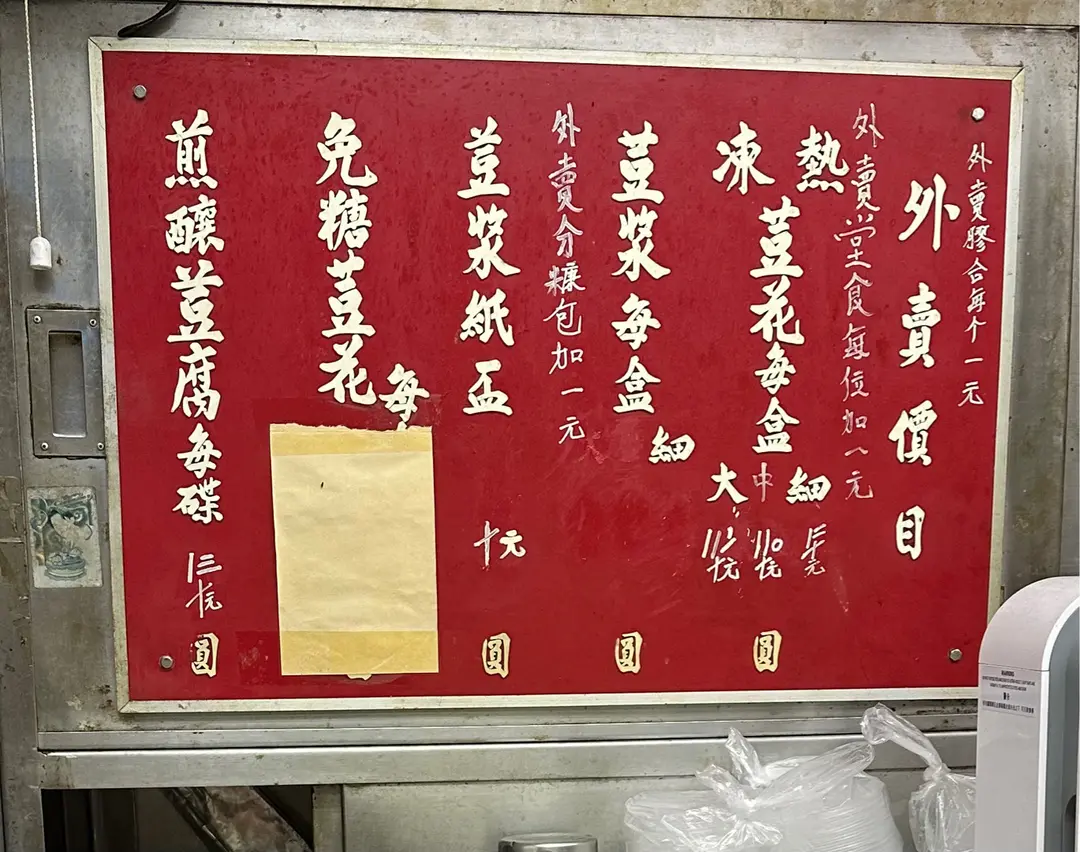 外賣膠合每个一元
外賣價目
外賣堂食每位加一元
熱凍荳花每盒細中大圓
荳漿每盒細圓
外賣分糖包加一元
荳漿紙盃十元圓
免糖荳花每
煎釀荳腐每碟圓